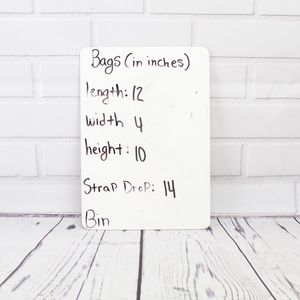 Bags (in inches)
length: 12
width 4
height: 10
Strap Drop: 14
Bin